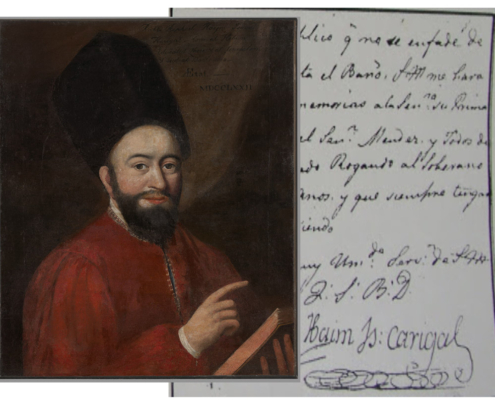 lico q̃ no se enfade de
ta el Baño. S. M me hara
memorias a la Sen.ra su Prima
el Sen.r Mendez. y Todos de
do Rogando al Soberano
anos. y que siempre tenga
iendo
uy Um.de Serv.r de S. M
Q. S. B. D.
Haim Is: carigal